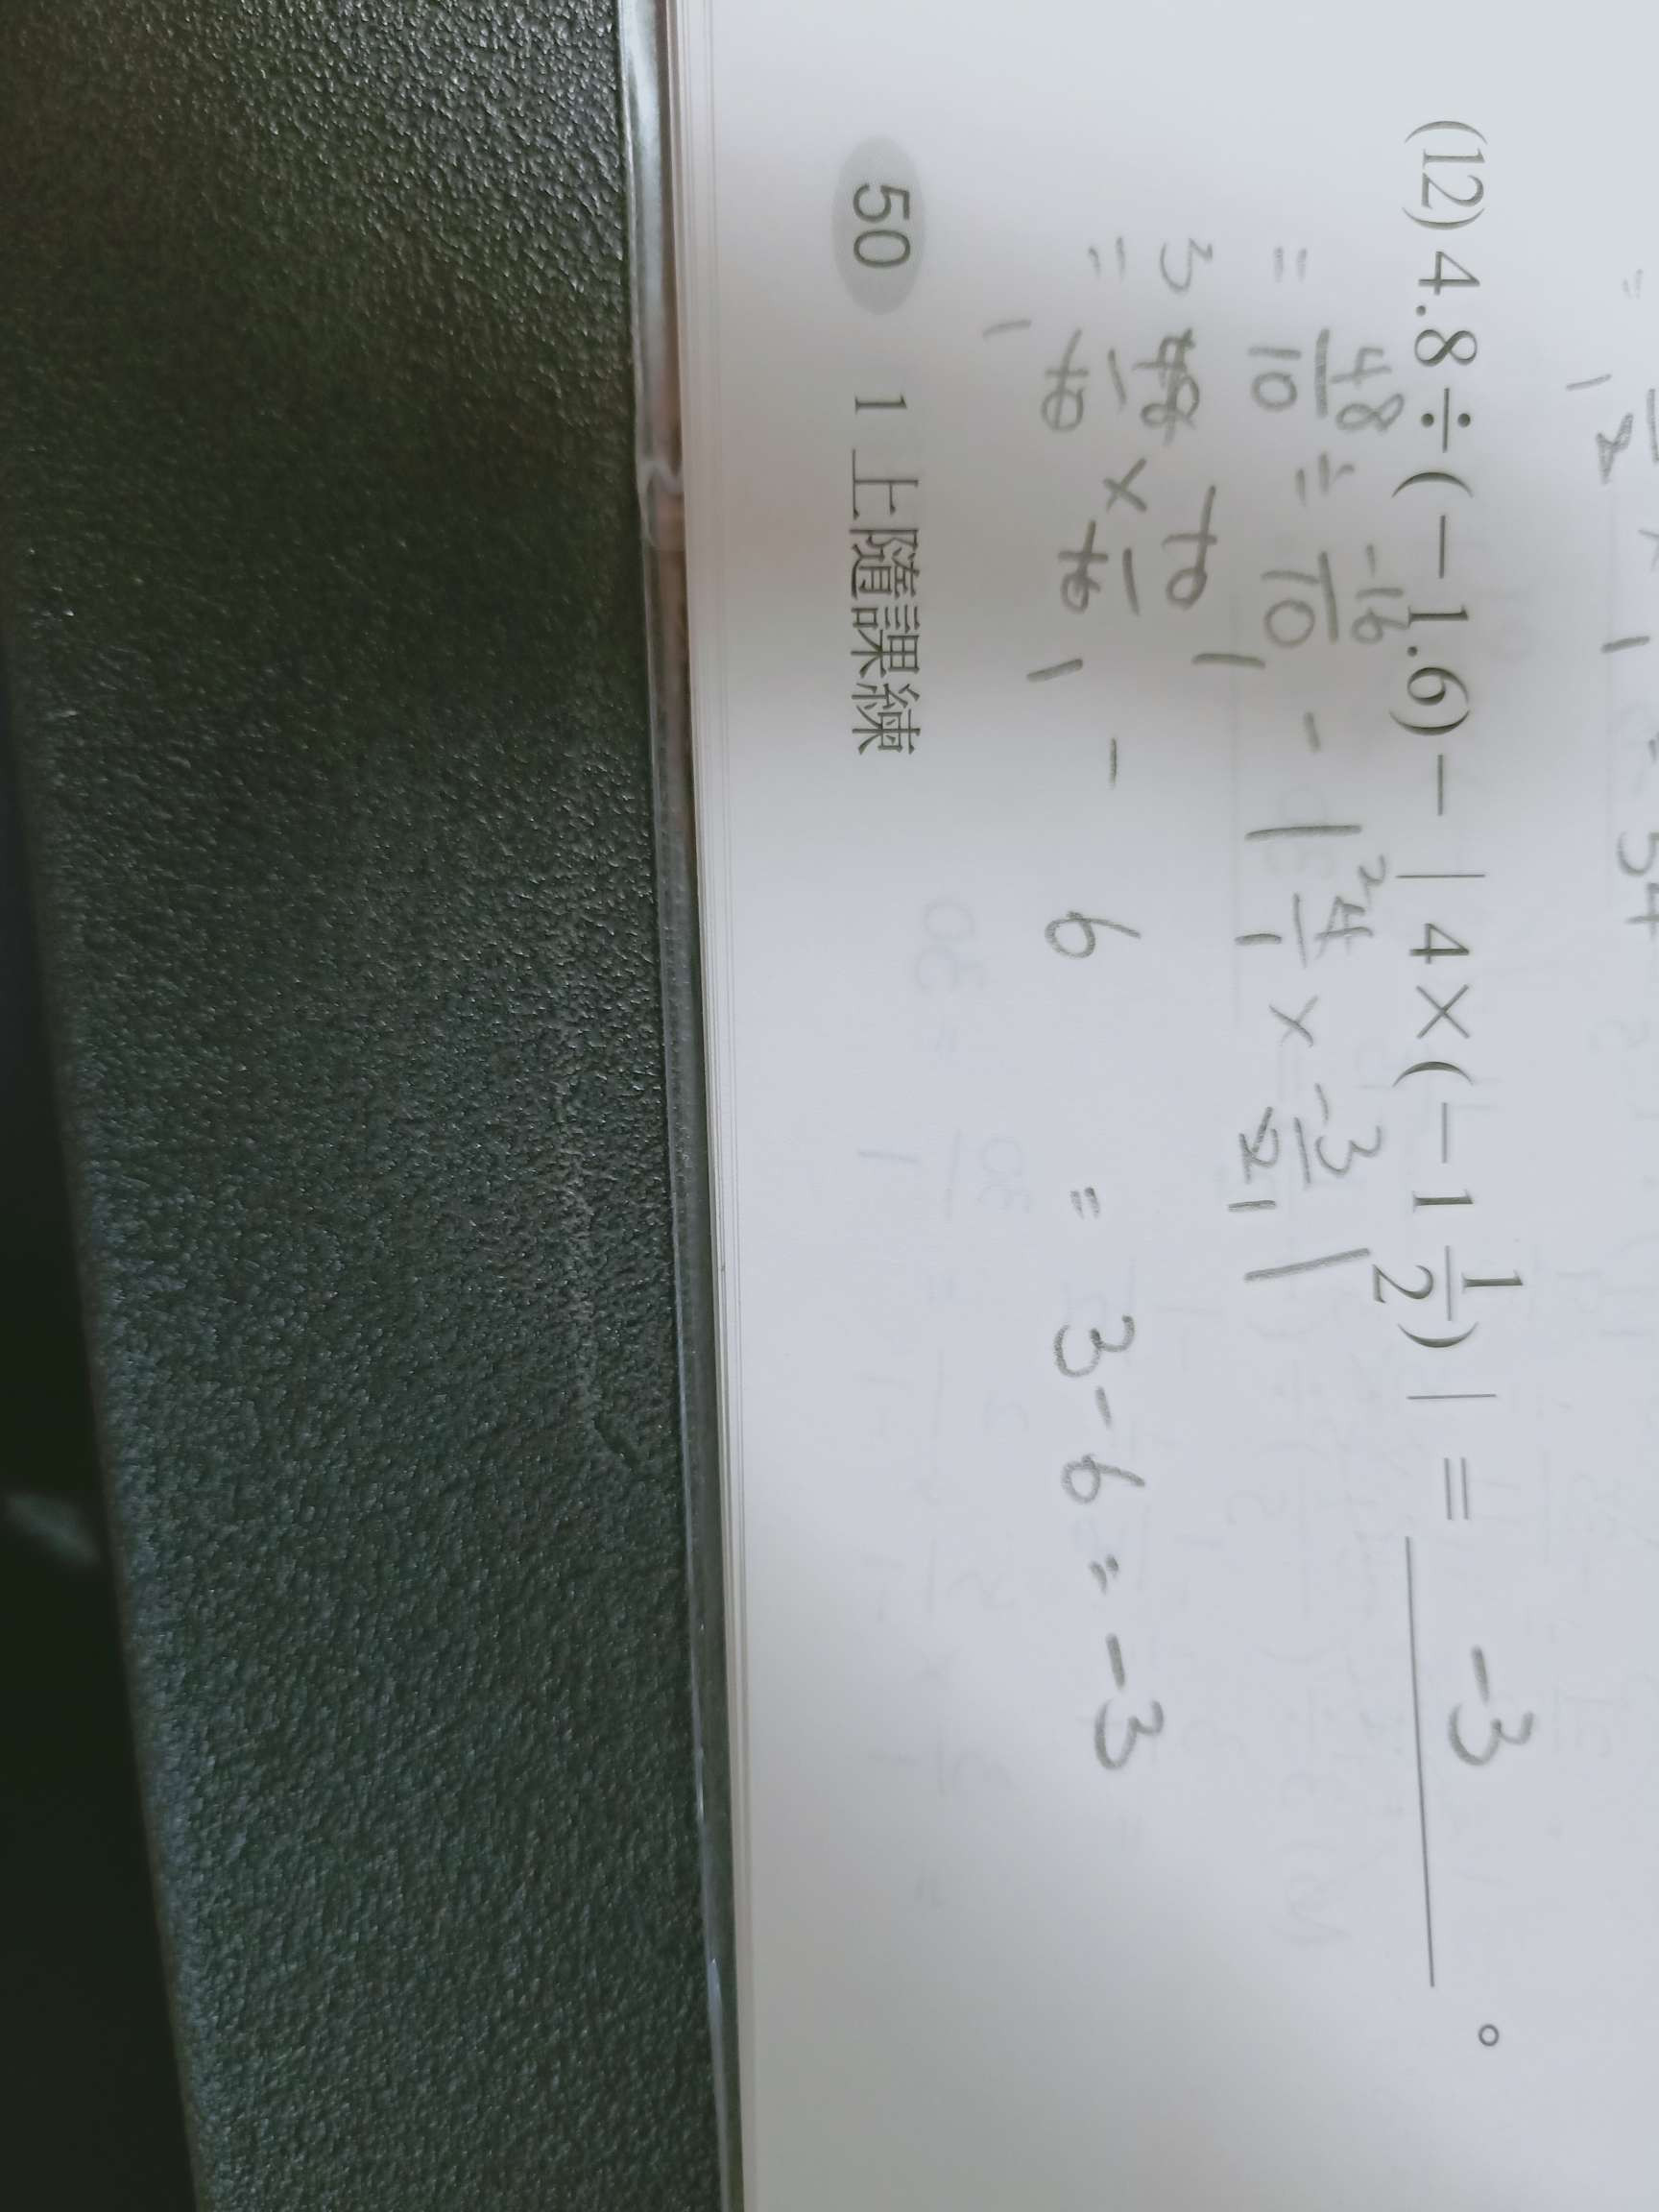 (12) 4.8÷(−1.6)−|4×(−1 1/2)| = -3 。
= 48/10 ÷ -16/10 - | 4/1 × -3/2 |
2 1 1
3 10 1
= 48/10 × 10/16 - 6 = 3-6 = -3
1 1
50 1 上隨課練